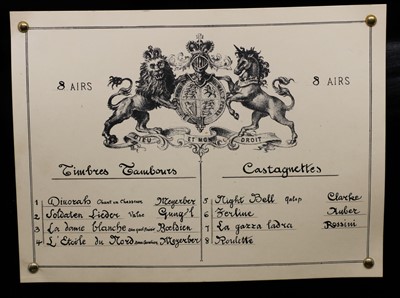 8 AIRS
8 AIRS
DIEU ET MON DROIT
Timbres Tambours
Castagnettes
1 Dinorah Chant du Chasseur Meyerber
2 Soldaten Lieder Valse Gung'l
3 La dame blanche Boeldieu
4 L'Etoile du Nord Meyerber
5 Night Bell galop Clarke
6 Zerline Auber
7 La gazza ladra Rossini
8 Roulette